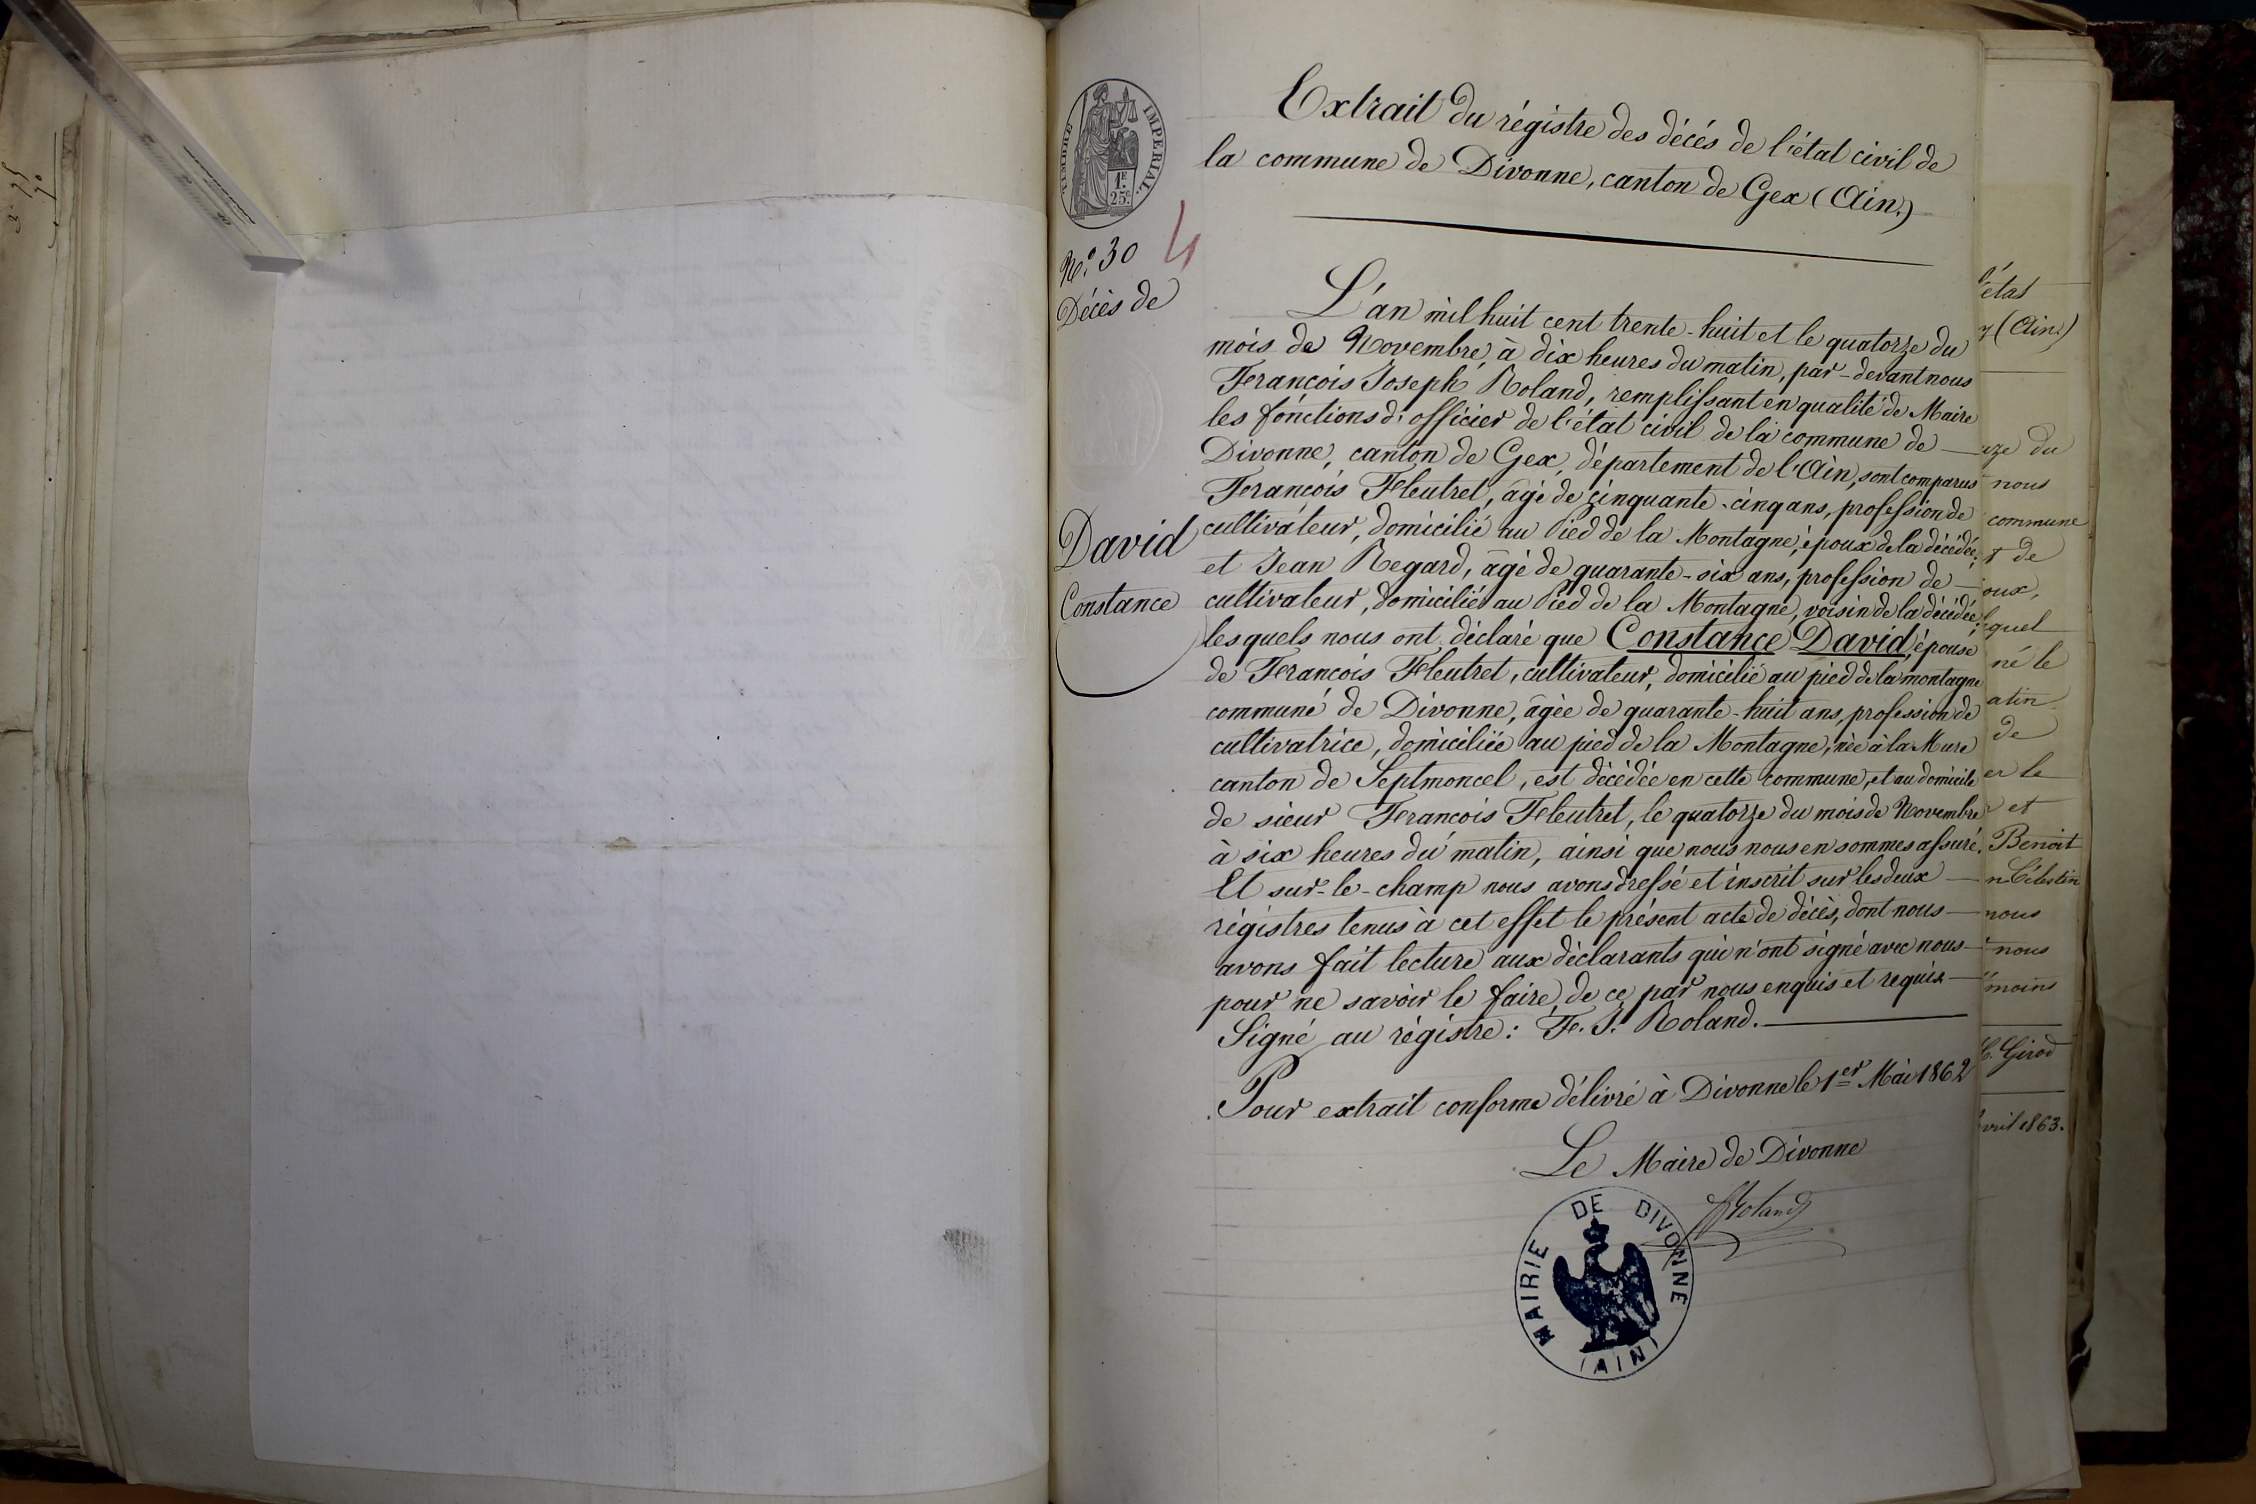 TIMBRE IMPERIAL
1F.
25c.
No. 30
4
Décès de
David
Constance
Extrait du régistre des décés de l'état civil de
la commune de Divonne, canton de Gex (Ain.)
L'an mil huit cent trente-huit et le quatorze du
mois de Novembre, à dix heures du matin, par-devant nous
François Joseph Roland, remplissant en qualité de Maire
les fonctions d'officier de l'état civil de la commune de
Divonne, canton de Gex, département de l'Ain, sont comparus
François Fleutret, âgé de cinquante-cinq ans, profession de
cultivateur, domicilié au Pied de la Montagne, époux de la décédée;
et Jean Regard, âgé de quarante-six ans, profession de
cultivateur, domicilié au Pied de la Montagne, voisin de la décédée;
lesquels nous ont déclaré que Constance David, épouse
de François Fleutret, cultivateur, domicilié au pied de la montagne
commune de Divonne, âgée de quarante-huit ans, profession de
cultivatrice, domiciliée au pied de la Montagne, née à la Mure
canton de Septmoncel, est décédée en cette commune, et au domicile
de sieur François Fleutret, le quatorze du mois de Novembre
à six heures du matin, ainsi que nous nous en sommes assuré.
Et sur-le-champ nous avons dressé et inscrit sur les deux
régistres tenus à cet effet le présent acte de décès, dont nous
avons fait lecture aux déclarants qui n'ont signé avec nous
pour ne savoir le faire, de ce par nous enquis et requis
Signé au régistre: F. J. Roland.
Pour extrait conforme délivré à Divonne le 1er Mai 1862
Le Maire de Divonne
Roland
MAIRIE DE DIVONNE
(AIN)
l'état
(Ain.)
du
nous
commune
de
né le
de
er le
et
Benoit
Célestin
nous
nous
Girod
1863.